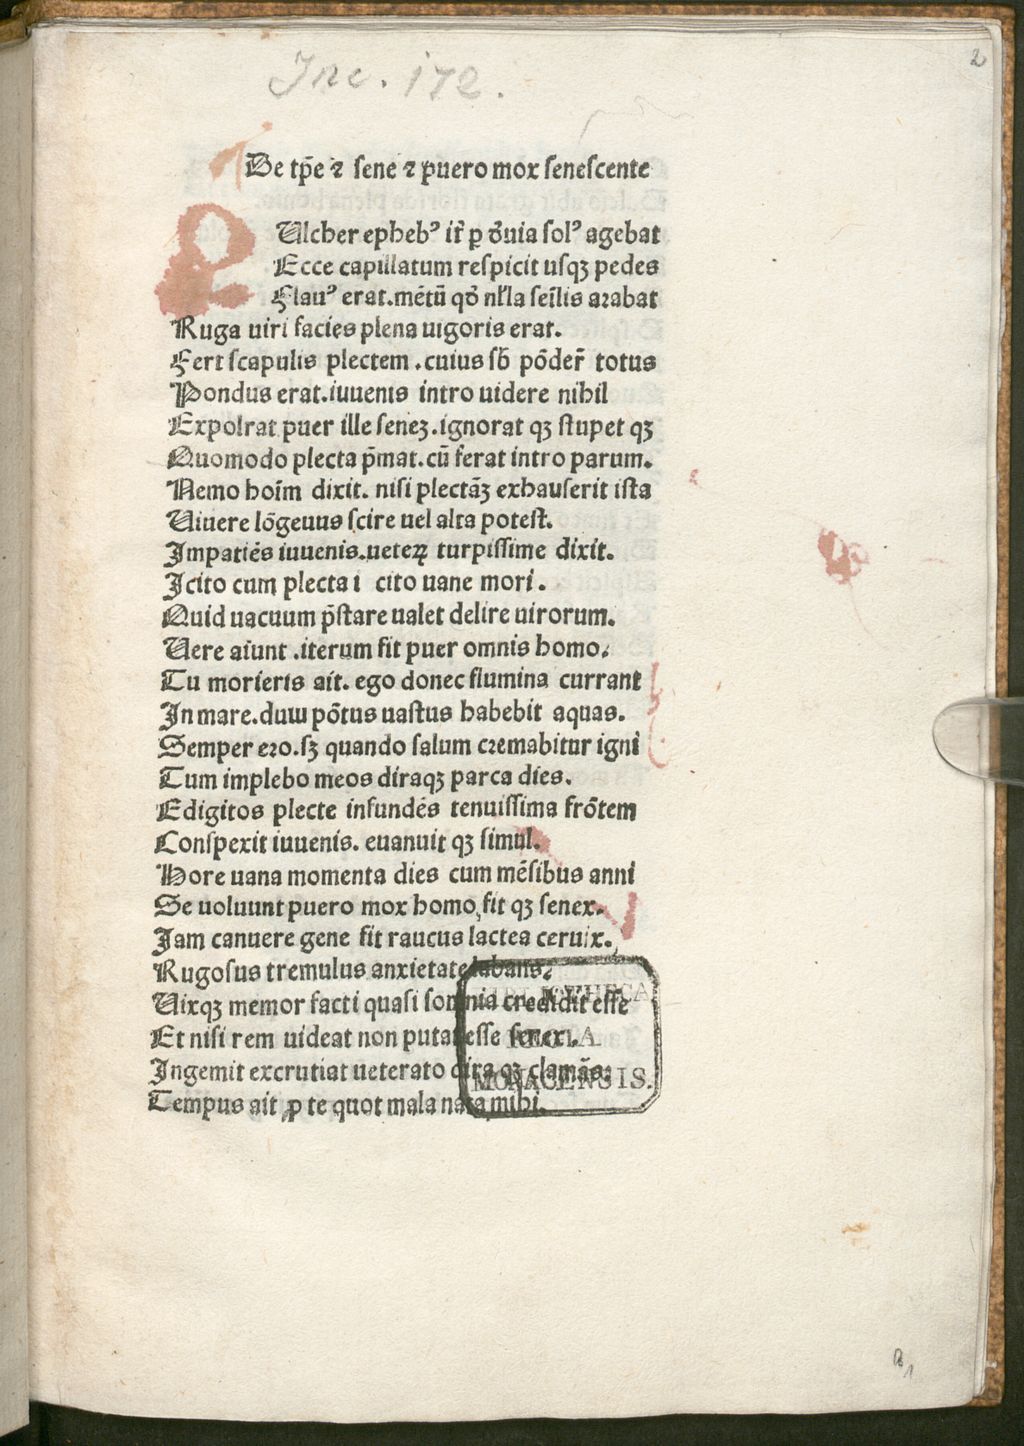 Inc. 172.
2
De tp̄e ⁊ sene ⁊ puero mox senescente
PUlcher ephebꝰ it̄ ꝑ ꝺ̄uia solꝰ agebat
Ecce capillatum respicit usqꝫ pedes
Flauꝰ erat. mētū qꝺ̄ nl̄la seīlis arabat
Ruga uiri facies plena uigoris erat.
Fert scapulis plectem . cuius sb̄ pōder̄ totus
Pondus erat. iuuenis intro uidere nihil
Expolrat puer ille seneꝫ . ignorat qꝫ stupet qꝫ
Quomodo plecta p̄mat. cū ferat intro parum.
Nemo hoīm dixit. nisi plectāꝫ exhauserit ista
Uiuere lōgeuus scire uel alta potest.
Impatiēs iuuenis. ueteꝝ turpissime dixit.
Icito cum plecta i cito uane mori .
Quid uacuum p̄stare ualet delire uirorum.
Uere aiunt . iterum fit puer omnis homo.
Tu morieris ait. ego donec flumina currant
In mare. duɯ pōtus uastus habebit aquas.
Semper ero. sꝫ quando salum cremabitur igni
Tum implebo meos diraqꝫ parca dies.
Edigitos plecte infundēs tenuissima frōtem
Conspexit iuuenis. euanuit qꝫ simul.
Hore uana momenta dies cum mēsibus anni
Se uoluunt puero mox homo, fit qꝫ senex.
Jam canuere gene fit raucus lactea ceruix.
Rugosus tremulus anxietate labans.
Uixqꝫ memor facti quasi somnia credidit esse
Et nisi rem uideat non putat esse senex.
Ingemit excrutiat ueterato dira qꝫ clamās.
Tempus ait ꝓ te quot mala nata mihi.
BIBLIOTHECA
REGIA
MONACENSIS.